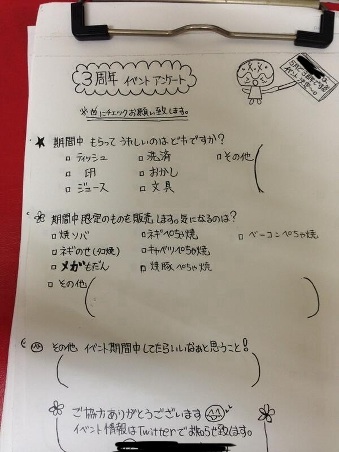 3周年 イベントアンケート
※□にチェックお願い致します。
★ 期間中 もらって うれしいのは どれですか?
□ ティッシュ □ 洗済 □ その他 (
□ 卵 □ おかし
□ ジュース □ 文具
期間中限定のものを販売します。気になるのは?
□ 焼ソバ □ ネギぺちゃ焼 □ ベーコンぺちゃ焼
□ ネギのせ(タコ焼) □ キャベツぺちゃ焼
□ メガもだん □ 焼豚ぺちゃ焼
□ その他 ( )
その他、イベント期間中してたらいいなぁと思うこと!
( )
ご協力ありがとうございます
イベント情報はTwitterでお知らせ致します。